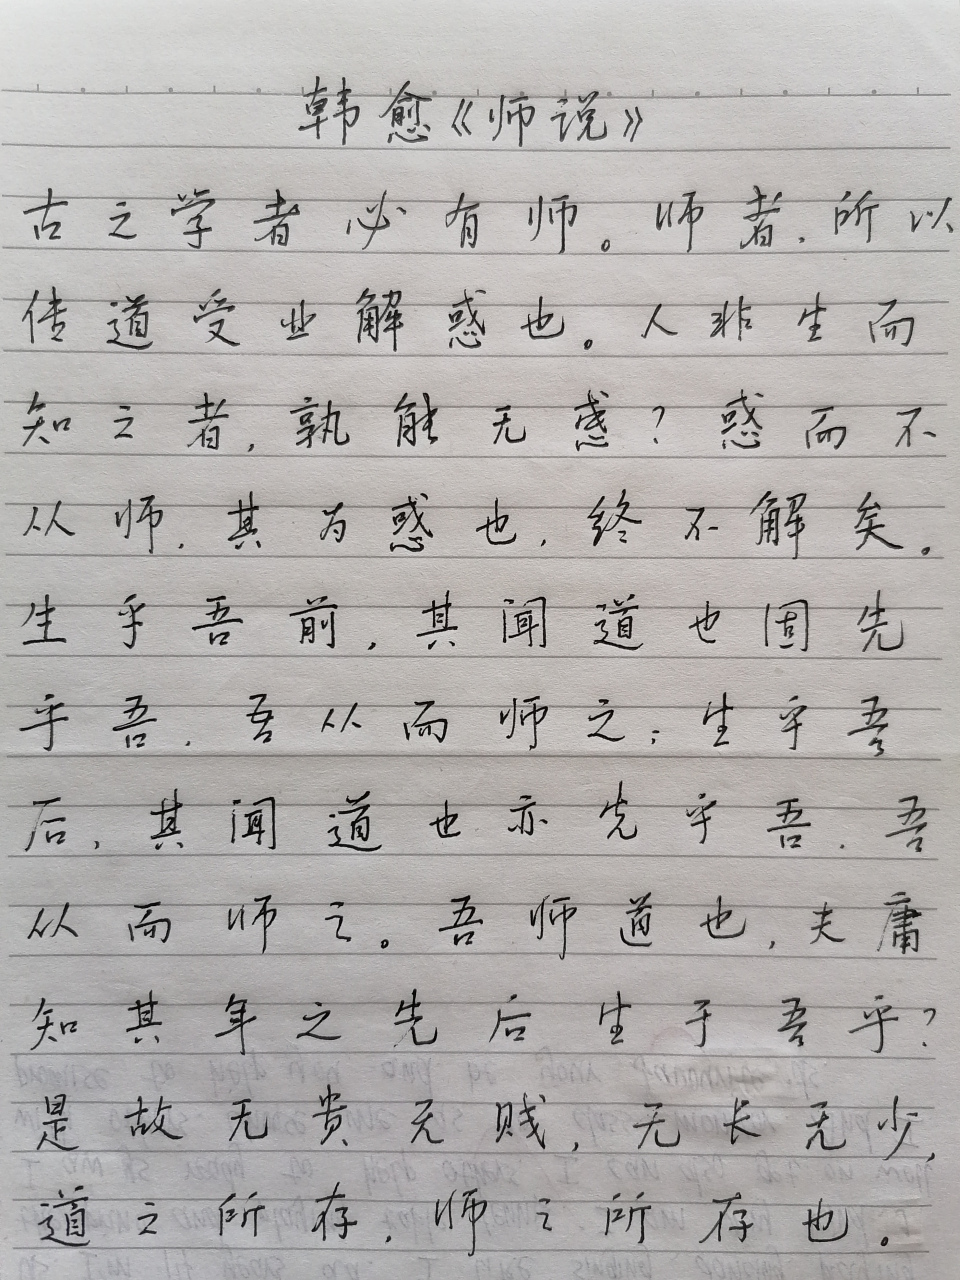 韩愈《师说》
古之学者必有师。师者,所以
传道受业解惑也。人非生而
知之者,孰能无惑?惑而不
从师,其为惑也,终不解矣。
生乎吾前,其闻道也固先
乎吾,吾从而师之;生乎吾
后,其闻道也亦先乎吾,吾
从而师之。吾师道也,夫庸
知其年之先后生于吾乎?
是故无贵无贱,无长无少,
道之所存,师之所存也。